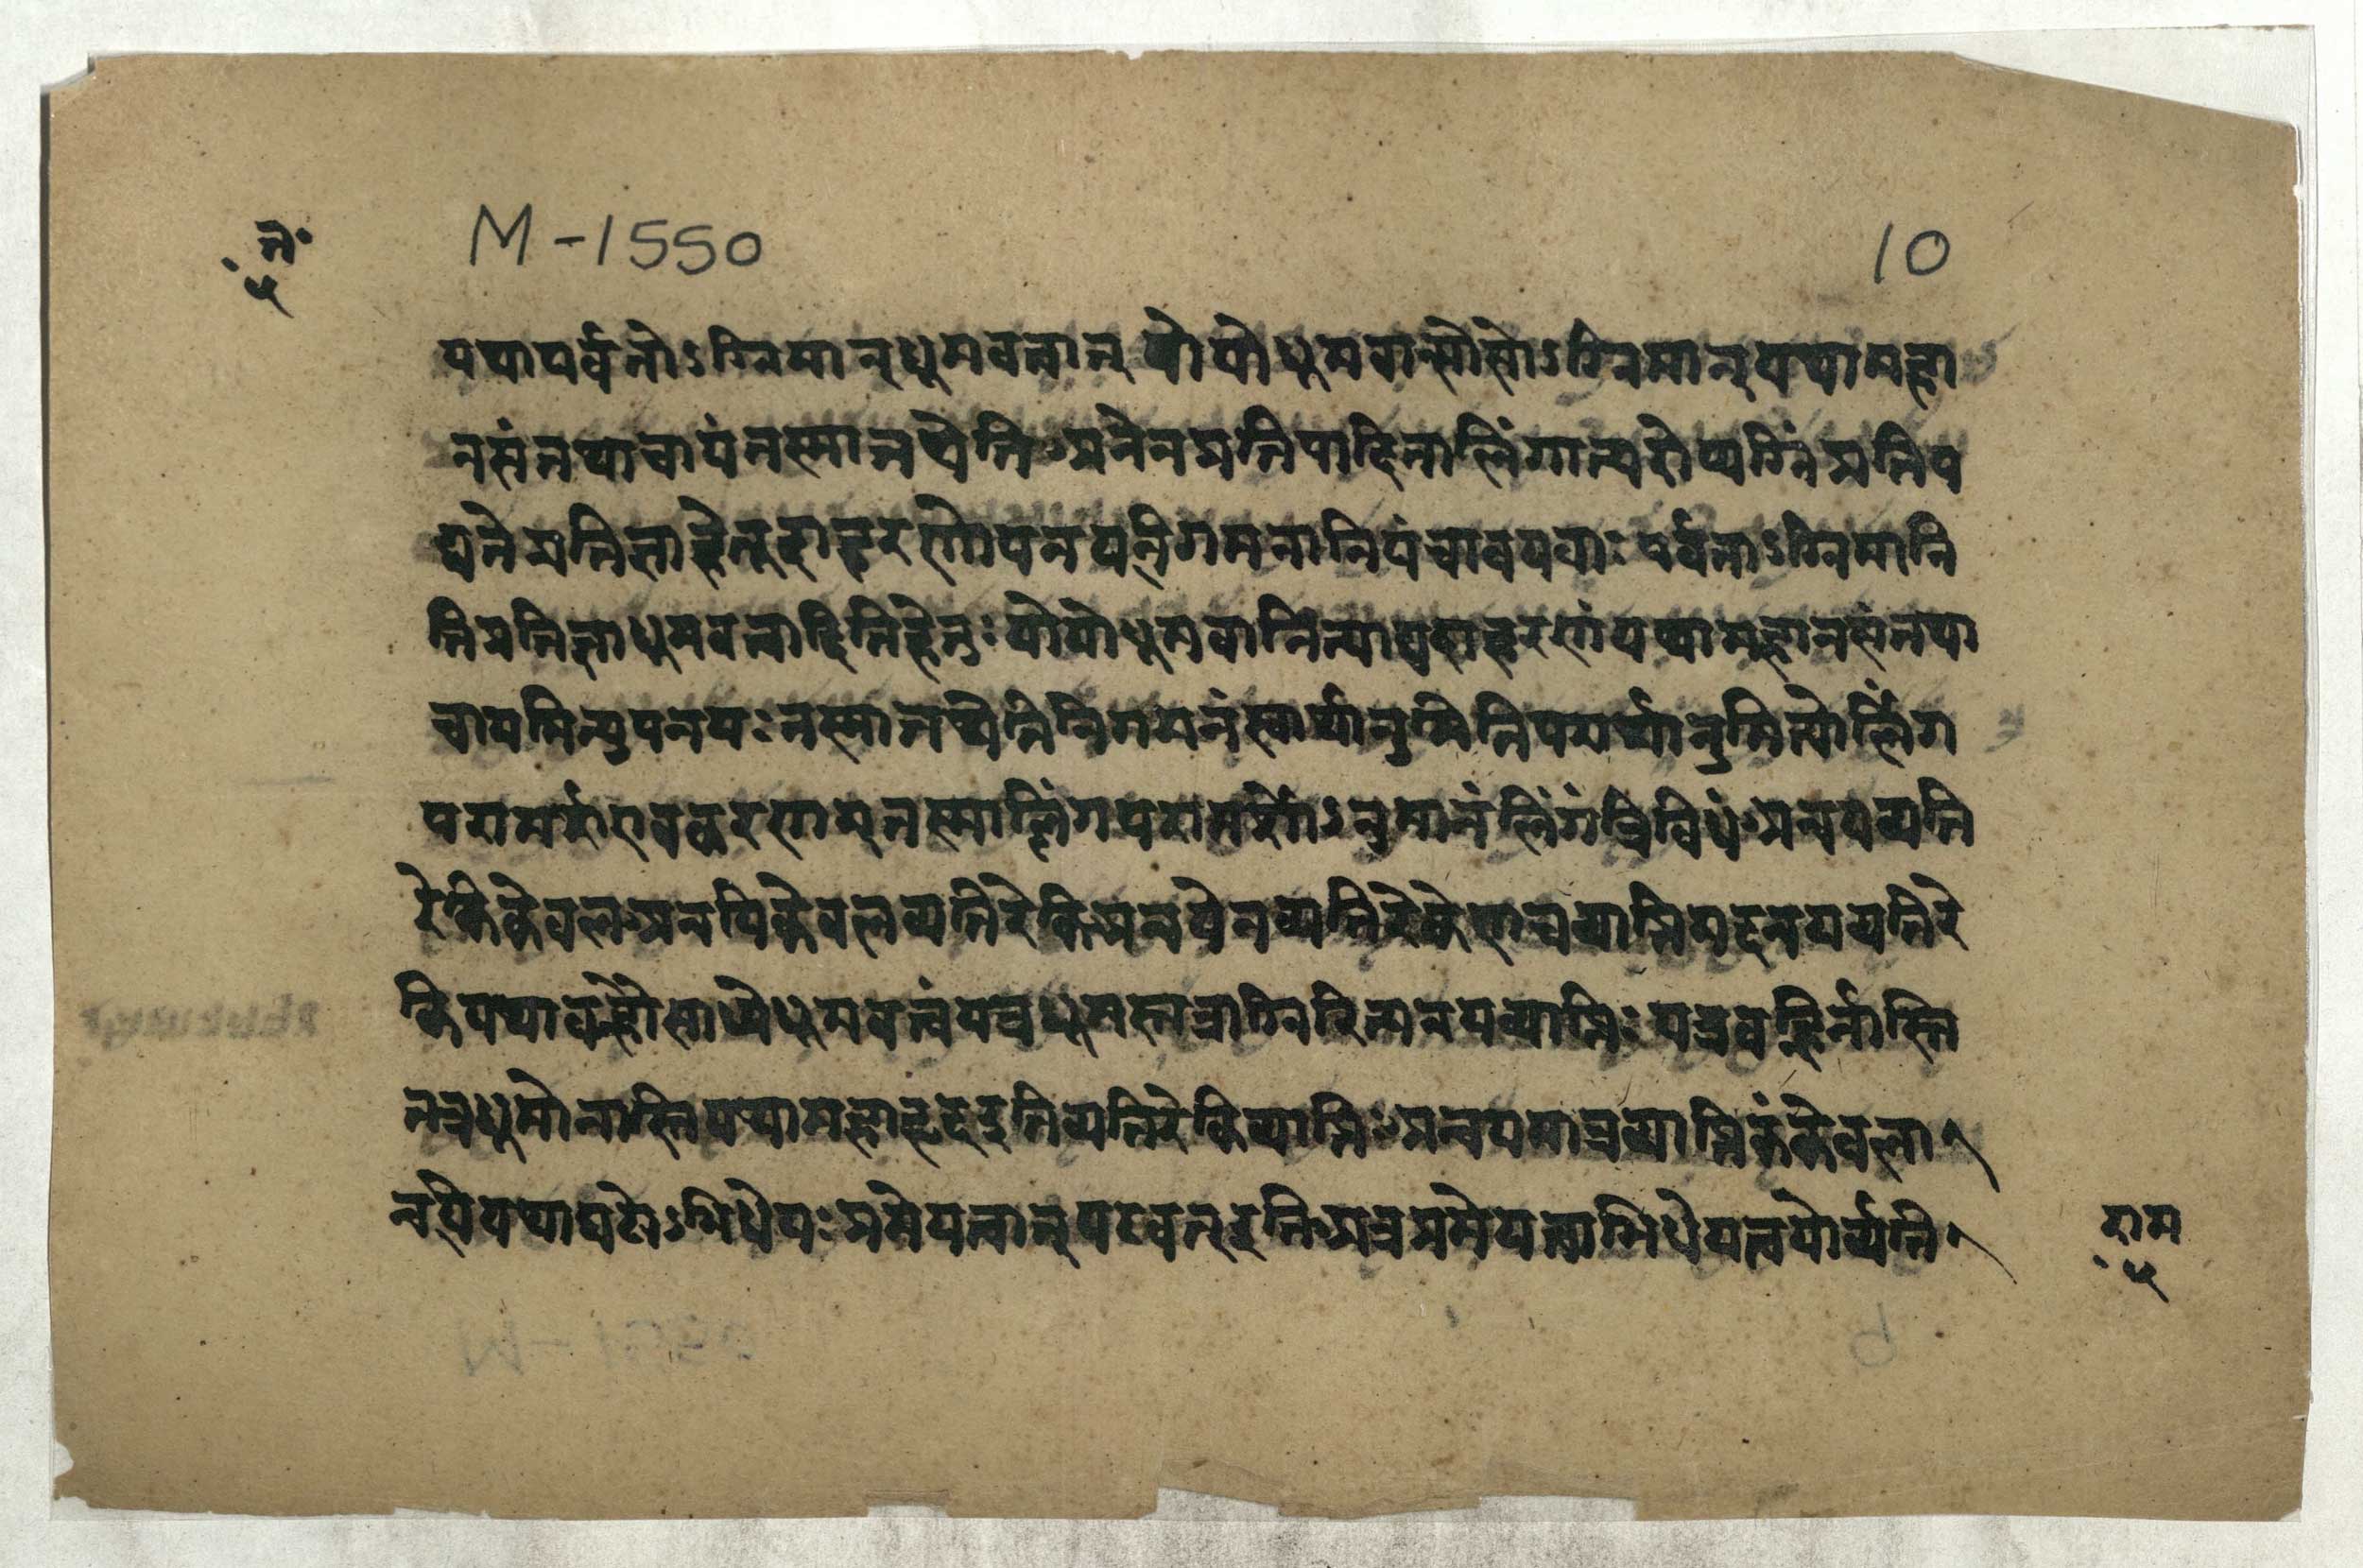 त॰
॰५
M-1550
10
यथापर्वतोऽग्निमान्धूमवत्वात् योयोधूमवान्सोसोऽग्निमान्यथामहा
नसंतथाचायंतस्मात्तथेति अनेनप्रतिपादितालिंगात्परोप्यग्निंप्रतिप
द्यतेप्रतिज्ञाहेतूदाहरणोपनयनिगमनानिपंचावयवाः पर्वतोऽग्निमानि
तिप्रतिज्ञाधूमवत्वादितिहेतुः योयोधूमवानित्याद्युदाहरणंयथामहानसंतथा
चायमित्युपनयः तस्मात्तथेतिनिगमनंस्वार्थानुमितिपरार्थानुमित्योर्लिंग
परामर्शएवकरणम् तस्माल्लिंगपरामर्शोऽनुमानं लिंगंत्रिविधं अन्वयव्यति
रेकिकेवलान्वयिकेवलव्यतिरेकि अन्वयेनव्यतिरेकेणचव्याप्तिमदन्वयव्यतिरे
कियथावह्नौसाध्येधूमवत्वंयत्रधूमस्तत्राग्निरित्यन्वयव्याप्तिः यत्रवह्निर्नास्ति
तत्रधूमोनास्तियथामहाह्रदइतिव्यतिरेकिव्याप्तिः अन्वयमात्रव्याप्तिकंकेवला
न्वयियथाघटोऽभिधेयः प्रमेयत्वात् पटवत् इतिअत्रप्रमेयत्वाभिधेयत्वयोर्व्यति
राम
॰५